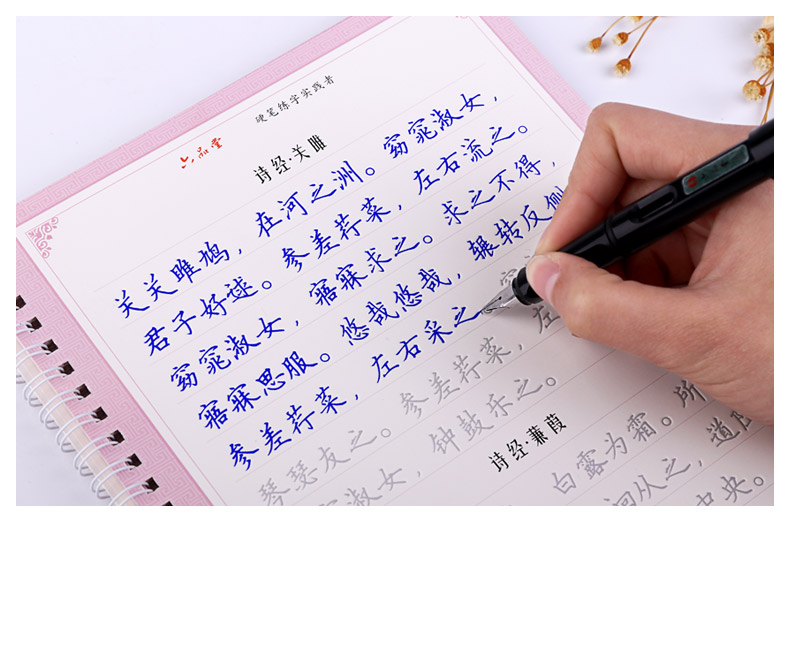 硬笔练字实践者
六品堂
诗经·关雎
关关雎鸠，在河之洲。窈窕淑女，
君子好逑。参差荇菜，左右流之。
窈窕淑女，寤寐求之。求之不得，
寤寐思服。悠哉悠哉，辗转反侧
参差荇菜，左右采之
琴瑟友之。参差荇菜，左
淑女，钟鼓乐之。
诗经·蒹葭
白露为霜。所
洄从之，道阻
中央。